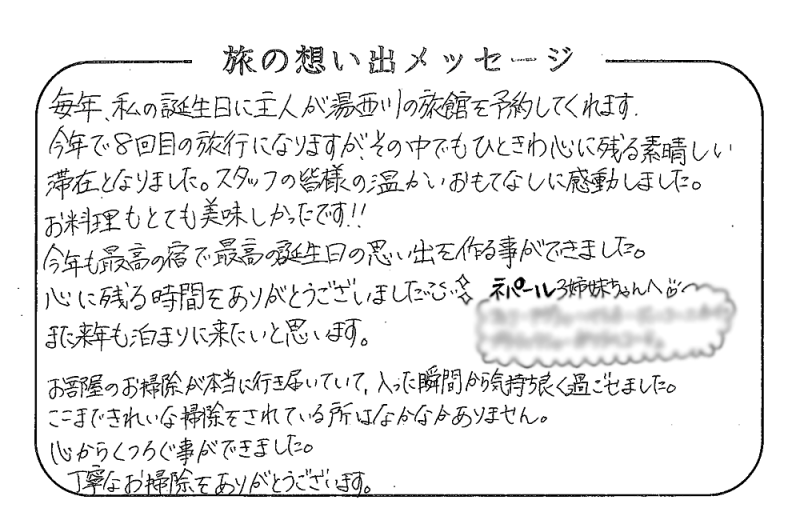 旅の想い出メッセージ
毎年、私の誕生日に主人が湯西川の旅館を予約してくれます.
今年で8回目の旅行になりますが、その中でもひときわ心に残る素晴しい
滞在となりました。スタッフの皆様の温かいおもてなしに感動しました。
お料理もとても美味しかったです!!
今年も最高の宿で最高の誕生日の思い出を作る事ができました。
心に残る時間をありがとうございました
ネパール3姉妹ちゃんへ
また来年も泊まりに来たいと思います。
お部屋のお掃除が本当に行き届いていて、入った瞬間から気持ち良く過ごせました。
ここまできれいな掃除をされている所はなかなかありません。
心からくつろぐ事ができました。
丁寧なお掃除をありがとうございます。